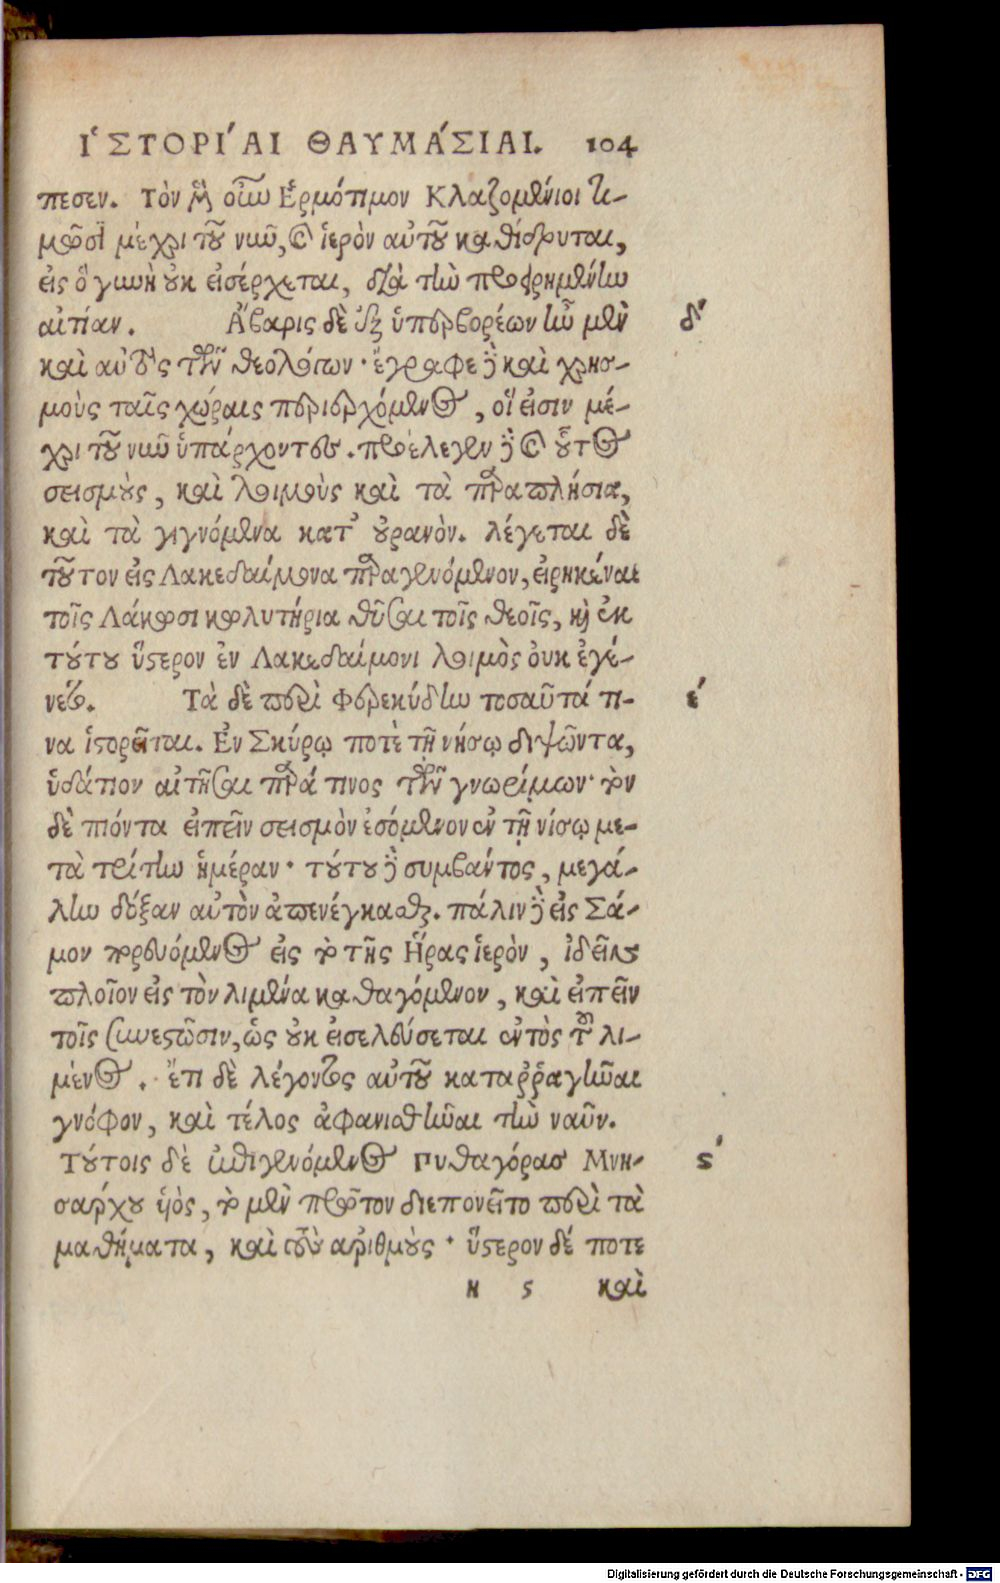 ἹΣΤΟΡΊΑΙ ΘΑΥΜΆΣΙΑΙ. 104
πεσεν. Τὸν δὲ οὖν Ἑρμότιμον Κλαζομένιοι τι-
μῶσι μέχρι τοῦ νῦν, καὶ ἱερὸν αὐτοῦ καθίδρυται,
εἰς ὃ γυνὴ οὐκ εἰσέρχεται, διὰ τὴν προειρημένην
αἰτίαν. Ἄβαρις δὲ ἐξ ὑπερβορέων ἦν μὲν δ´
καὶ αὐτὸς τῶν θεολόγων· ἔγραφε δὲ καὶ χρησ-
μοὺς ταῖς χώραις περιερχόμενος, οἵ εἰσιν μέ-
χρι τοῦ νῦν ὑπάρχοντες. προέλεγεν δὲ καὶ οὗτος
σεισμοὺς, καὶ λοιμοὺς καὶ τὰ παραπλήσια,
καὶ τὰ γιγνόμενα κατ' οὐρανὸν. λέγεται δὲ
τοῦτον εἰς Λακεδαίμονα παραγενόμενον, εἰρηκέναι
τοῖς Λάκωσι κωλυτήρια θῦσαι τοῖς θεοῖς, καὶ ἐκ
τούτου ὕστερον ἐν Λακεδαίμονι λοιμὸς οὐκ ἐγέ-
νετο. Τὰ δὲ περὶ Φερεκύδην τοσαῦτά τι- ε´
να ἱστορεῖται. Ἐν Σκύρῳ ποτὲ τῇ νήσῳ διψῶντα,
ὑδάτιον αἰτῆσαι παρά τινος τῶν γνωρίμων· τὸν
δὲ πιόντα εἰπεῖν σεισμὸν ἐσόμενον ἐν τῇ νίσῳ με-
τὰ τρίτην ἡμέραν· τούτου δὲ συμβάντος, μεγά-
λην δόξαν αὐτὸν ἀπενέγκασθαι. πάλιν δὲ εἰς Σά-
μον πορευόμενος εἰς τὸ τῆς Ἥρας ἱερὸν, ἰδεῖν
πλοῖον εἰς τὸν λιμένα καθαγόμενον, καὶ εἰπεῖν
τοῖς συνεστῶσιν, ὡς οὐκ εἰσελεύσεται ἐντὸς τοῦ λι-
μένος. ἔτι δὲ λέγοντος αὐτοῦ καταῤῥαγῆναι
γνόφον, καὶ τέλος ἀφανισθῆναι τὴν ναῦν.
Τούτοις δὲ ἐπιγενόμενος Πυθαγόρας Μνη- ϛ´
σάρχου υἱὸς, τὸ μὲν πρῶτον διεπονεῖτο περὶ τὰ
μαθήματα, καὶ τοὺς ἀριθμοὺς· ὕστερον δέ ποτε
κ ϛ καὶ
Digitalisierung gefördert durch die Deutsche Forschungsgemeinschaft - DFG